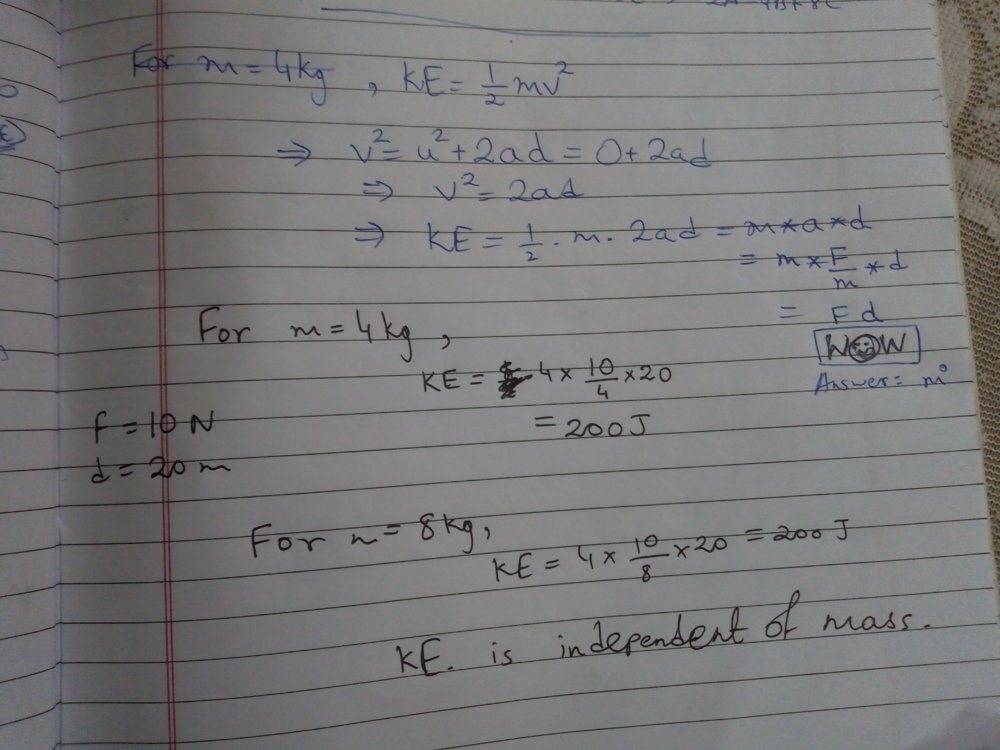 For m = 4kg, KE = 1/2 mv²
⇒ v² = u² + 2ad = 0 + 2ad
⇒ v² = 2ad
⇒ KE = 1/2 · m · 2ad = m*a*d
= m * F/m * d
= Fd
WOW
Answer = m⁰
For m = 4kg,
KE = 4 × 10/4 × 20
= 200 J
F = 10 N
d = 20 m
For m = 8kg,
KE = 4 × 10/8 × 20 = 200 J
KE. is independent of mass.